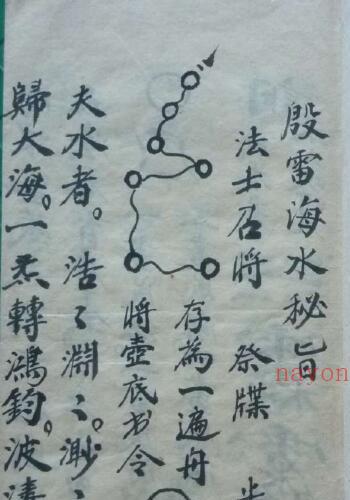 殷雷海水秘旨
法士召将 祭牒
存為一遍舟
将壺底书令
夫水者。浩〻淵〻。渺〻
歸大海。一炁轉鴻鈞。波濤
nayon